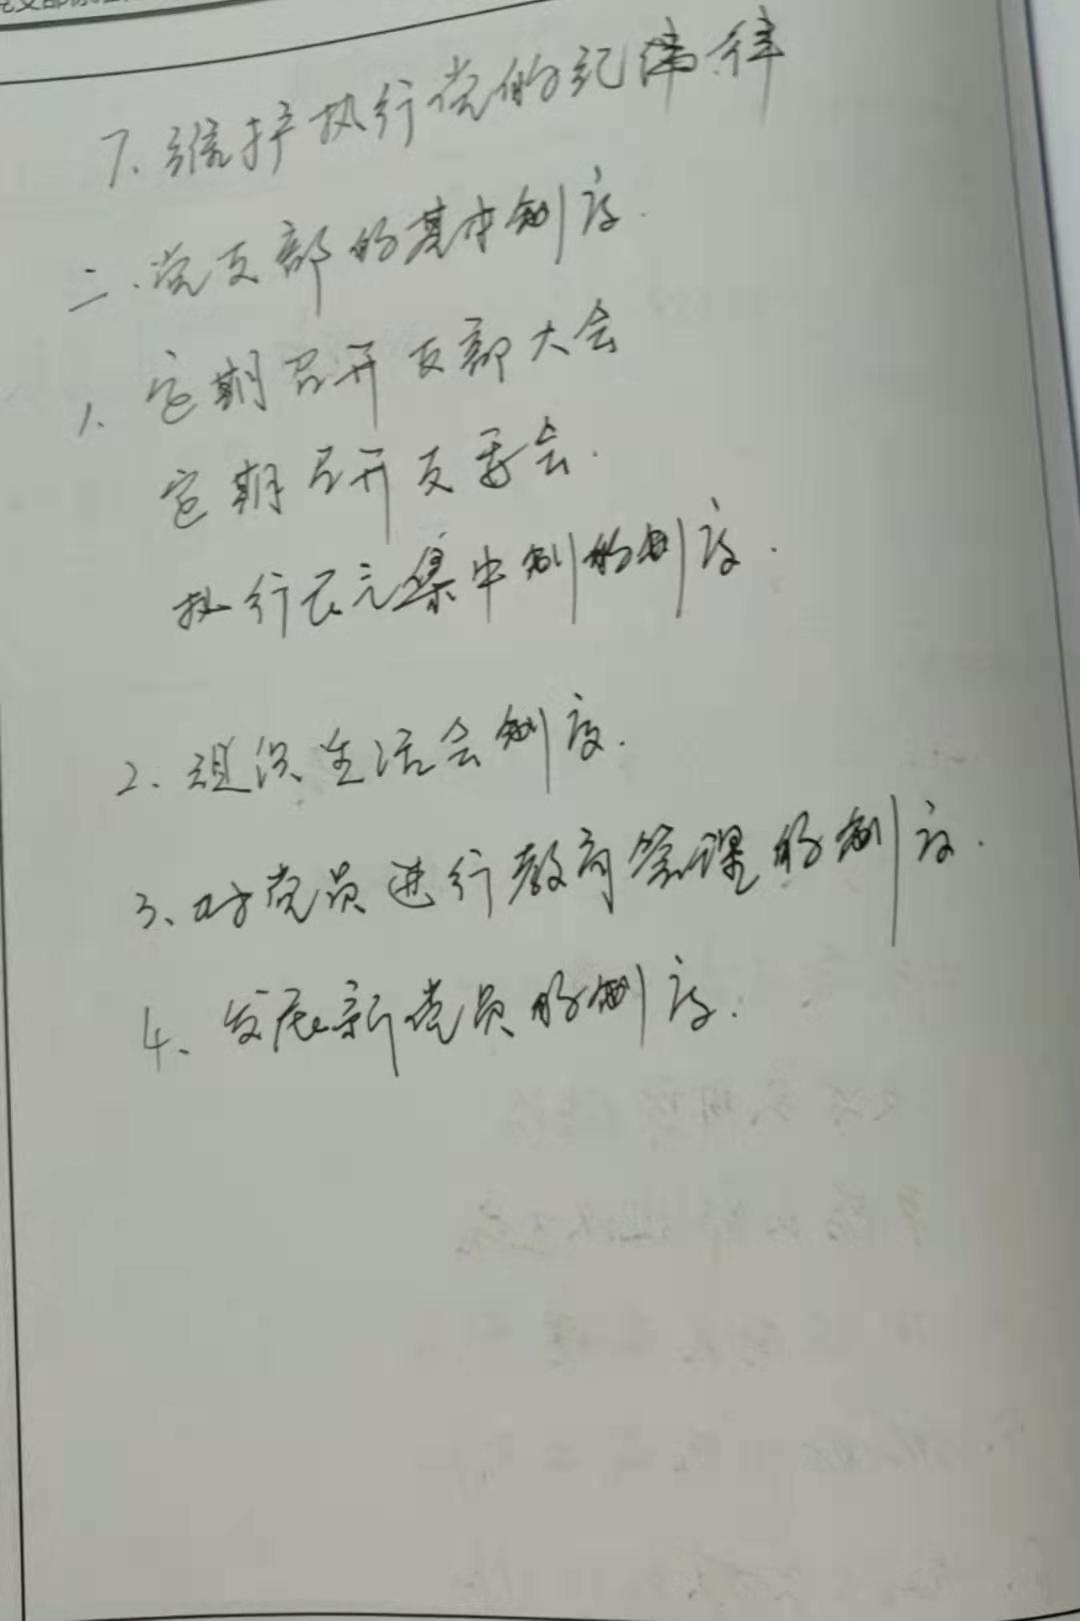 7、维护执行党的纪律
二、党支部的基本制度.
1、定期召开支部大会
定期召开支委会.
执行民主集中制的制度.
2、组织生活会制度.
3、对党员进行教育管理的制度.
4、发展新党员的制度.